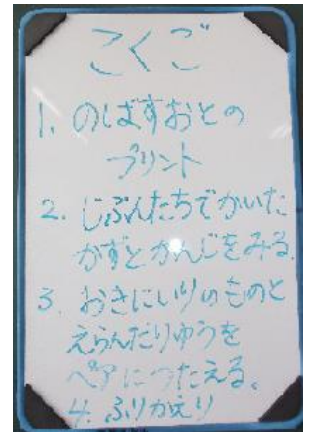 こくご
1. のばすおとの
プリント
2. じぶんたちでかいた
かずとかんじをみる.
3. おきにいりのものと
えらんだりゆうを
ペアにつたえる。
4. ふりかえり